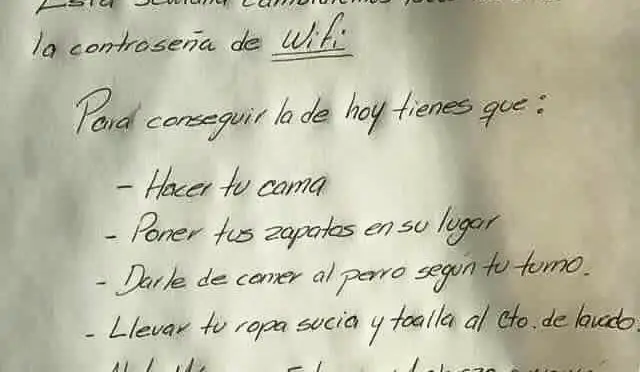 Esta semana cambiaremos
la contraseña de Wifi
Para conseguir la de hoy tienes que:
- Hacer tu cama
- Poner tus zapatos en su lugar
- Darle de comer al perro según tu turno.
- Llevar tu ropa sucia y toalla al cto. de lavado.